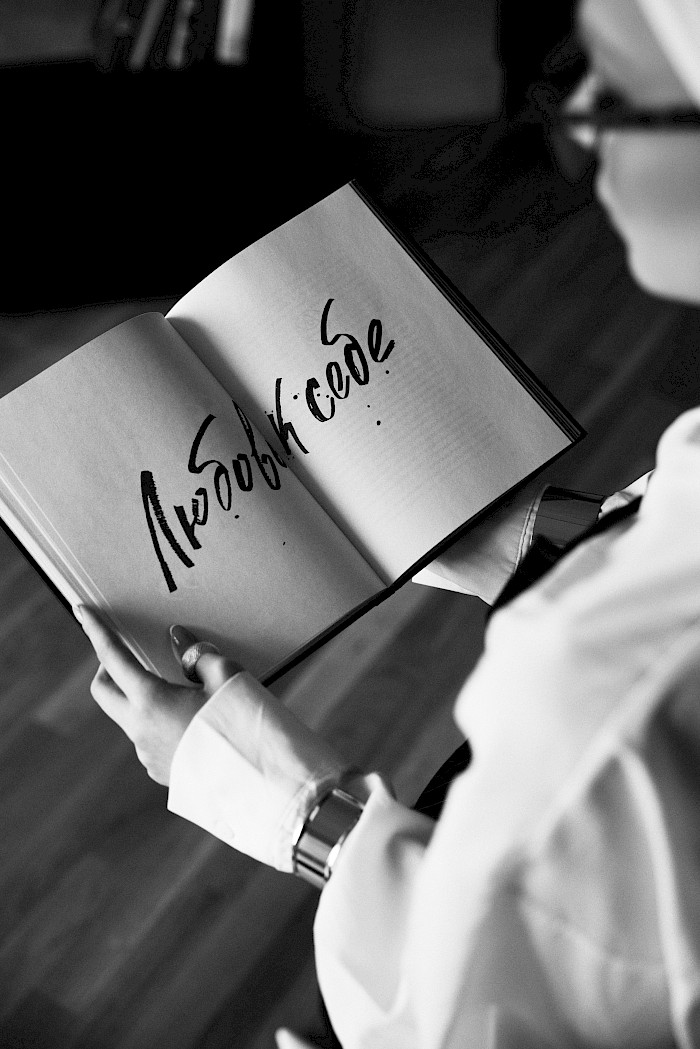 Любовь к себе